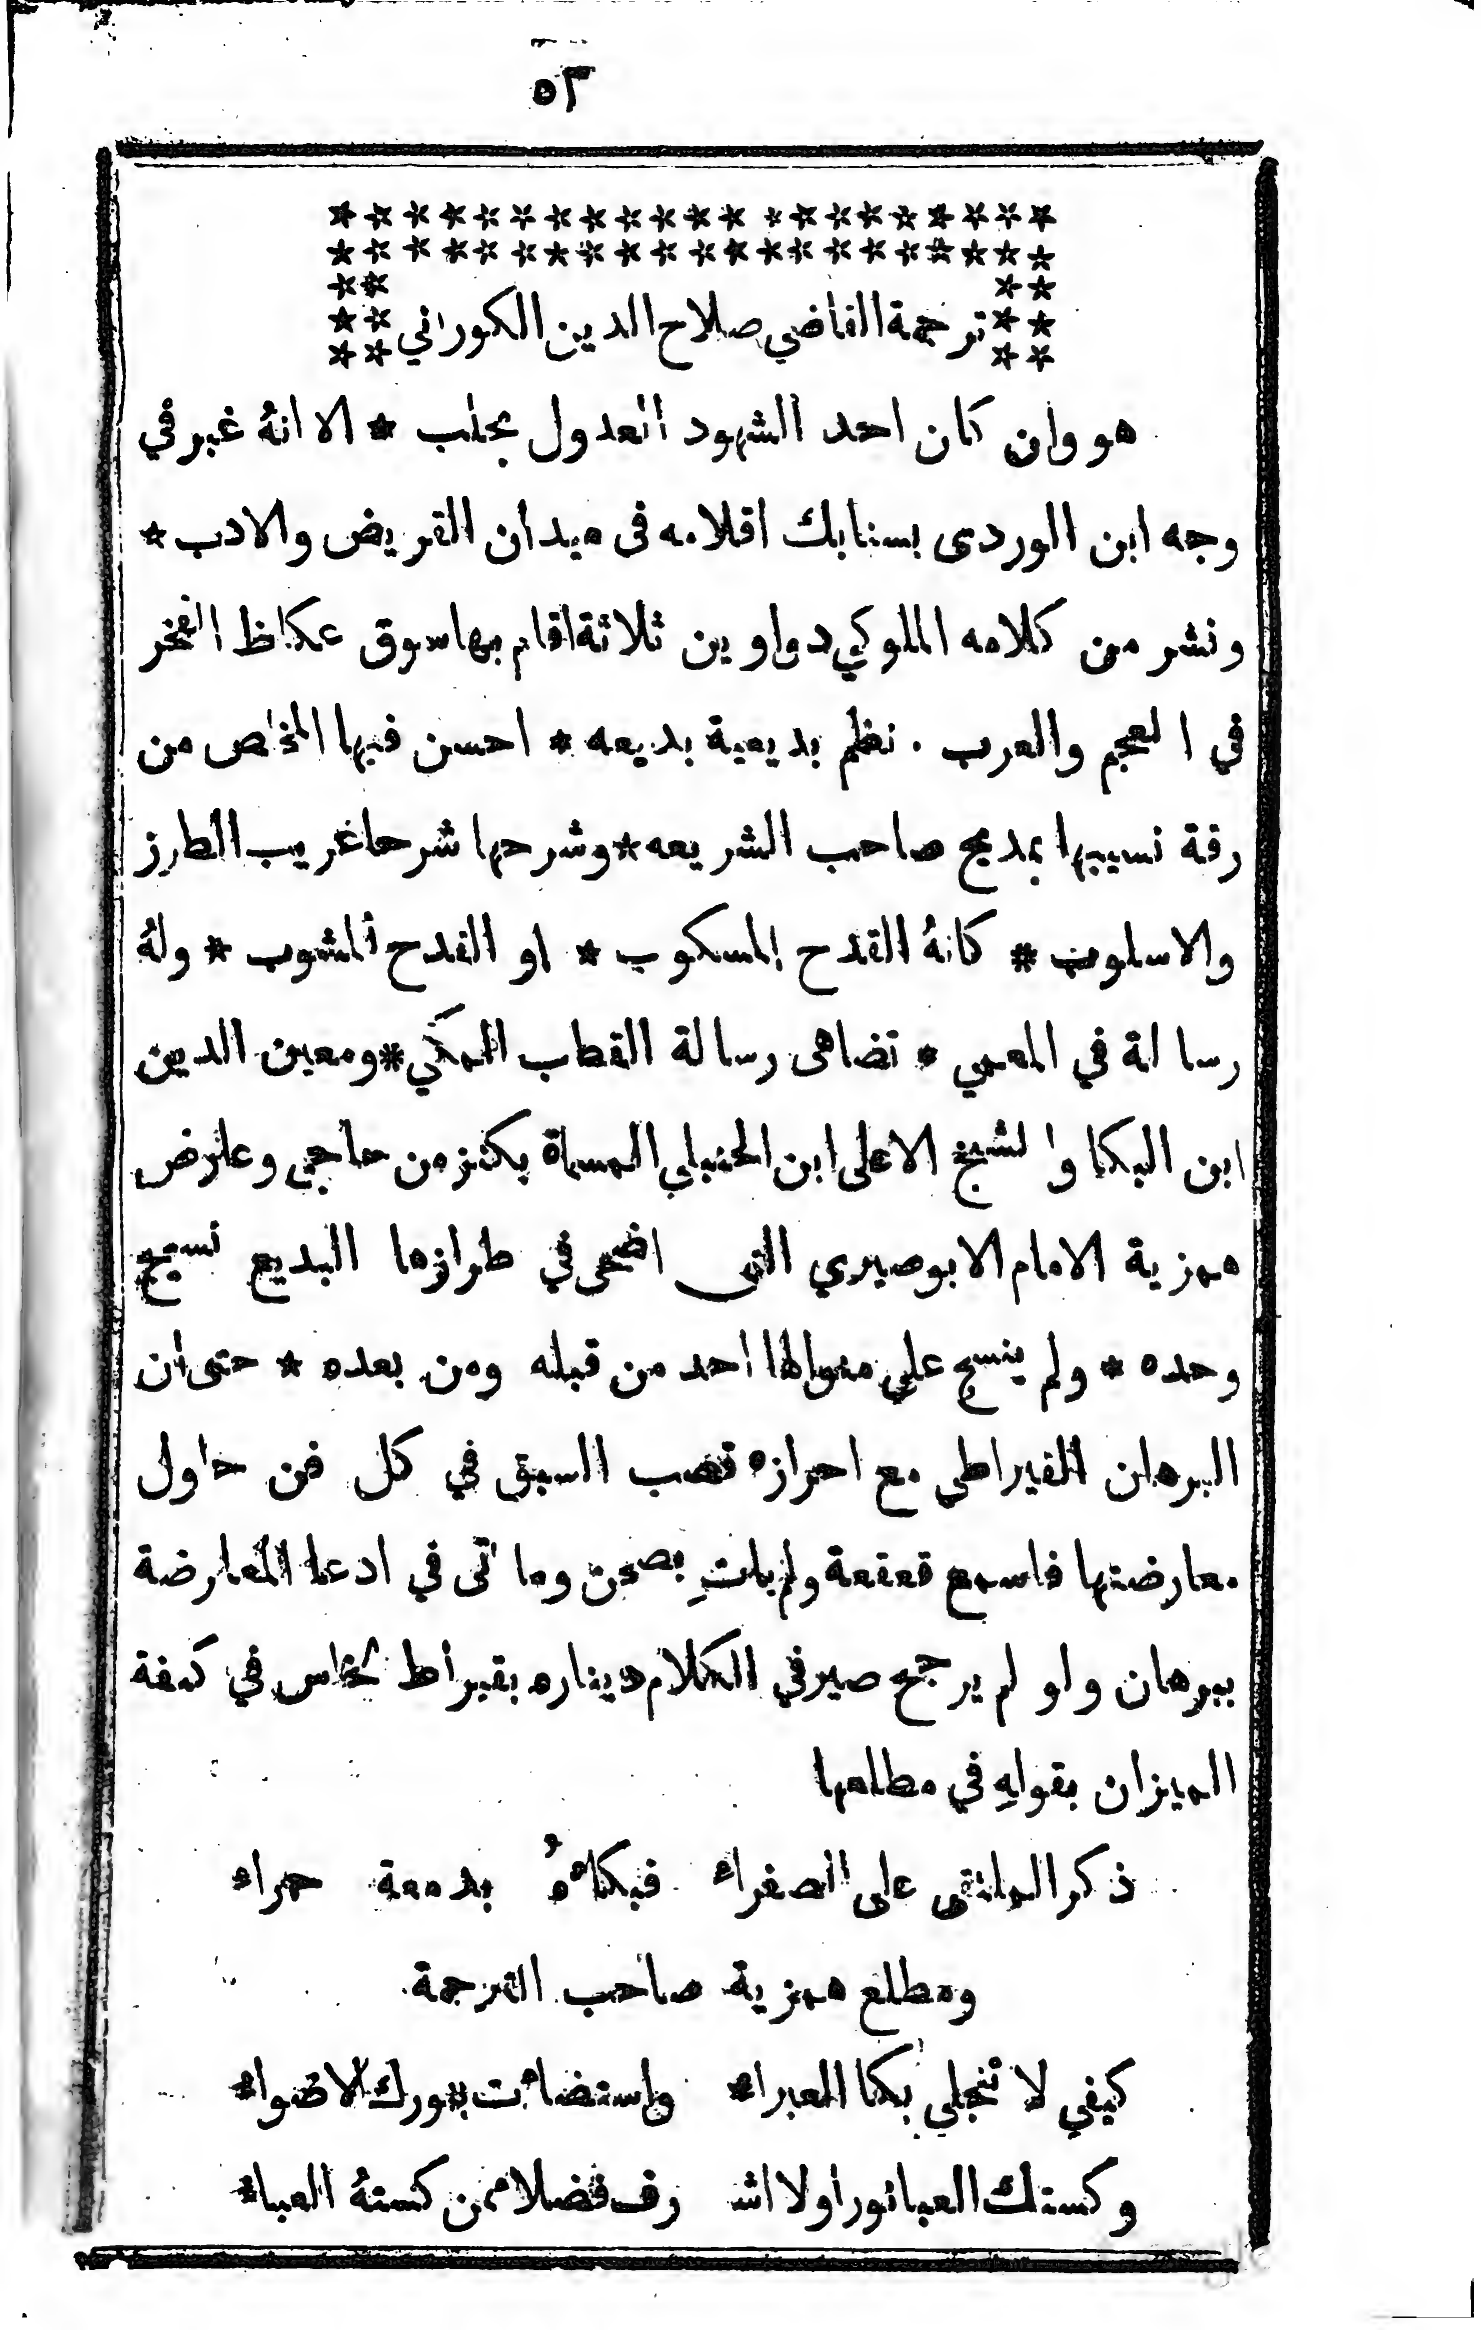 ٥٣
ترجمة القاضي صلاح الدين الكوراني
هو وان كان احد الشهود العدول بحلب * الا انهُ غبر في
وجه ابن الوردى بسنابك اقلامه فى ميدان القريض والادب *
ونشر من كلامه الملوكي دواوين ثلاثة اقام بها سوق عكاظ الفخر
في العجم والعرب . نظم بديعية بديعه * احسن فيها المخلص من
رقة نسيبها بمديح صاحب الشريعه * وشرحها شرحا غريب الطرز
والاسلوب * كانهُ القدح المسكوب * او القدح المشوب * ولهُ
رسالة في المعمي * تضاهى رسالة القطب المكي * ومعين الدين
ابن البكا والشيخ الاعلى ابن الحنبلي المسماة بكنز من حاجى وعارض
همزية الامام الابوصيري التى اضحى في طرازها البديع نسيج
وحده * ولم ينسج علي منوالها احد من قبله ومن بعده * حتى ان
البرهان القيراطي مع احرازه قصب السبق في كل فن حاول
معارضتها فاسمع قعقعة ولم يات بِصحن وما اتى في ادعا المعارضة
ببرهان ولو لم يرجح صيرفي الكلام ديناره بقيراط نحاس في كفة
الميزان بقولهِ في مطلعها
ذكر الملتقى على الصفراء فبكاهُ بدمعة حمراء
ومطلع همزية صاحب الترجمة
كيفي لا تنجلي بكا الغبراء واستضاءت بنورك الاضواء
وكستك العبا نورا ولا اشـ رف فضلا ممن كستهُ العباء